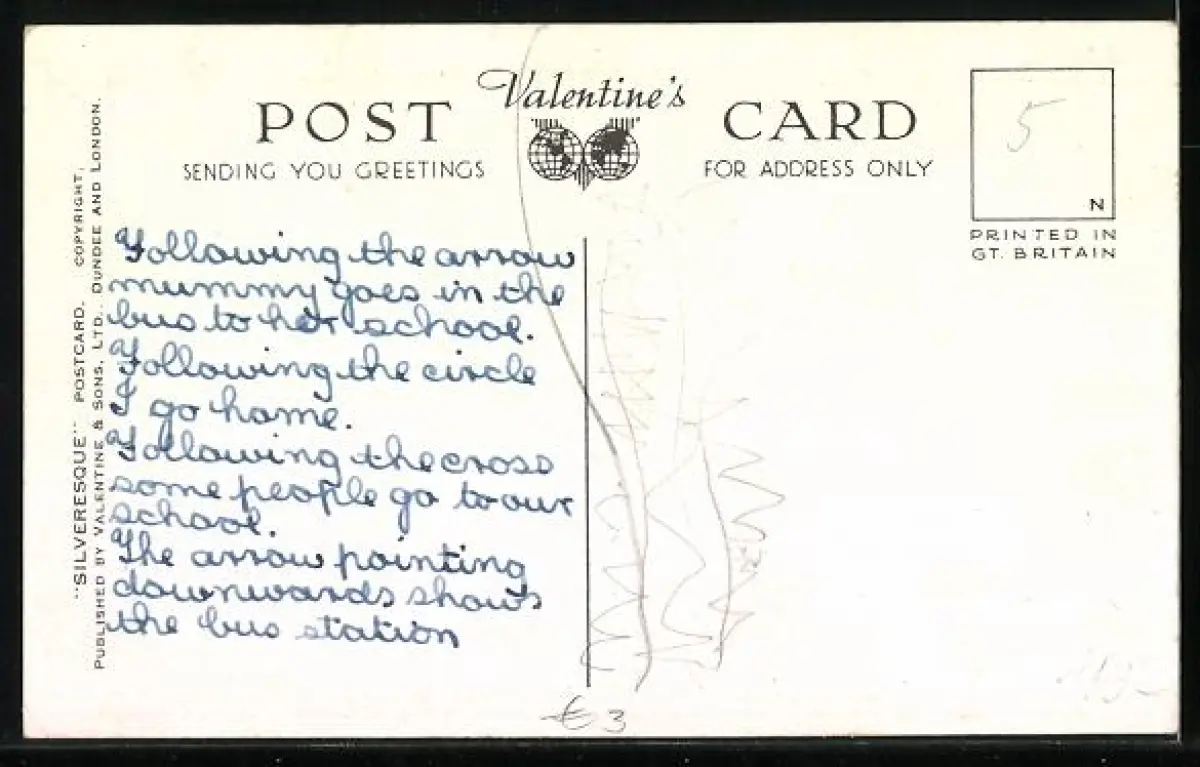 Valentine's
POST CARD
SENDING YOU GREETINGS
FOR ADDRESS ONLY
5
N
PRINTED IN
GT. BRITAIN
"SILVERESQUE" POSTCARD. COPYRIGHT,
PUBLISHED BY VALENTINE & SONS, LTD., DUNDEE AND LONDON.
Following the arrow
mummy goes in the
bus to her school.
Following the circle
I go home.
Following the cross
some people go to our
school.
The arrow pointing
downwards shows
the bus station
€ 3